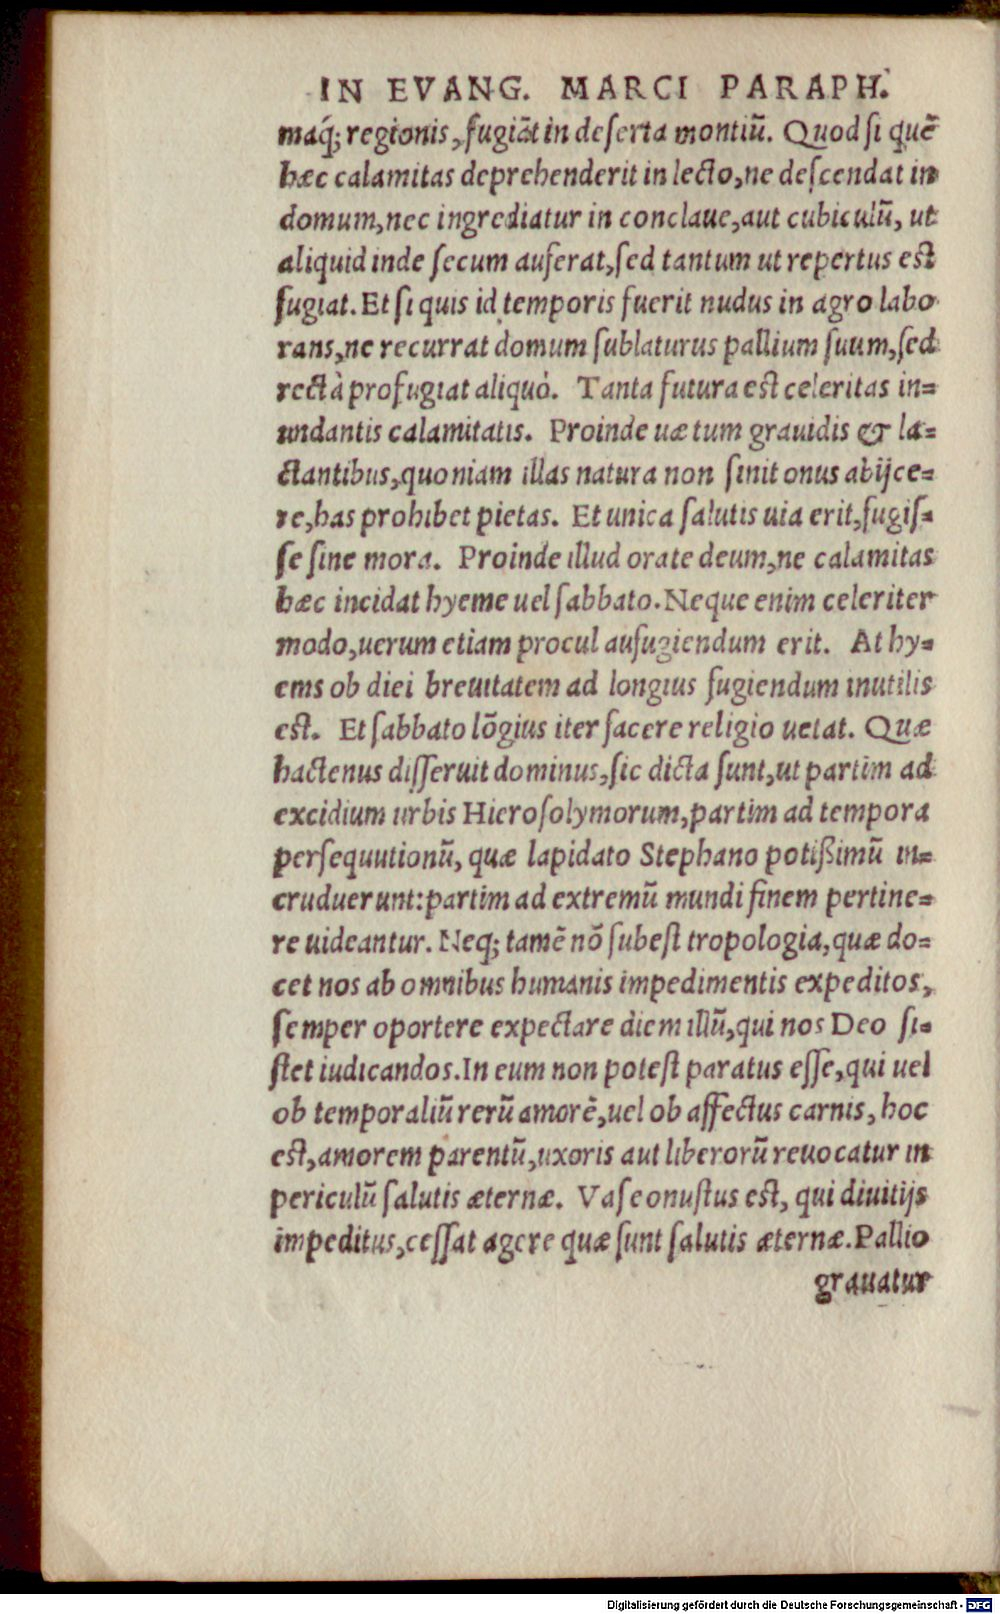 IN EVANG. MARCI PARAPH.
maq́; regionis, fugiāt in deserta montiū. Quod si quē
hæc calamitas deprehenderit in lecto, ne descendat in
domum, nec ingrediatur in conclaue, aut cubiculū, ut
aliquid inde secum auferat, sed tantum ut repertus est
fugiat. Et si quis id temporis fuerit nudus in agro labo
rans, ne recurrat domum sublaturus pallium suum, sed
rectà profugiat aliquò. Tanta futura est celeritas in=
undantis calamitatis. Proinde uæ tum grauidis & la=
ctantibus, quoniam illas natura non sinit onus abijce=
re, has prohibet pietas. Et unica salutis uia erit, fugis=
se sine mora. Proinde illud orate deum, ne calamitas
hæc incidat hyeme uel sabbato. Neque enim celeriter
modo, uerum etiam procul aufugiendum erit. At hy=
ems ob diei breuitatem ad longius fugiendum inutilis
est. Et sabbato lōgius iter facere religio uetat. Quæ
hactenus disseruit dominus, sic dicta sunt, ut partim ad
excidium urbis Hierosolymorum, partim ad tempora
persequutionū, quæ lapidato Stephano potißimū in=
cruduerunt: partim ad extremū mundi finem pertine=
re uideantur. Neq; tamē nō subest tropologia, quæ do=
cet nos ab omnibus humanis impedimentis expeditos,
semper oportere expectare diem illū, qui nos Deo si=
stet iudicandos. In eum non potest paratus esse, qui uel
ob temporaliū rerū amorē, uel ob affectus carnis, hoc
est, amorem parentū, uxoris aut liberorū reuocatur in
periculū salutis æternæ. Vase onustus est, qui diuitijs
impeditus, cessat agere quæ sunt salutis æternæ. Pallio
grauatur
Digitalisierung gefördert durch die Deutsche Forschungsgemeinschaft - DFG